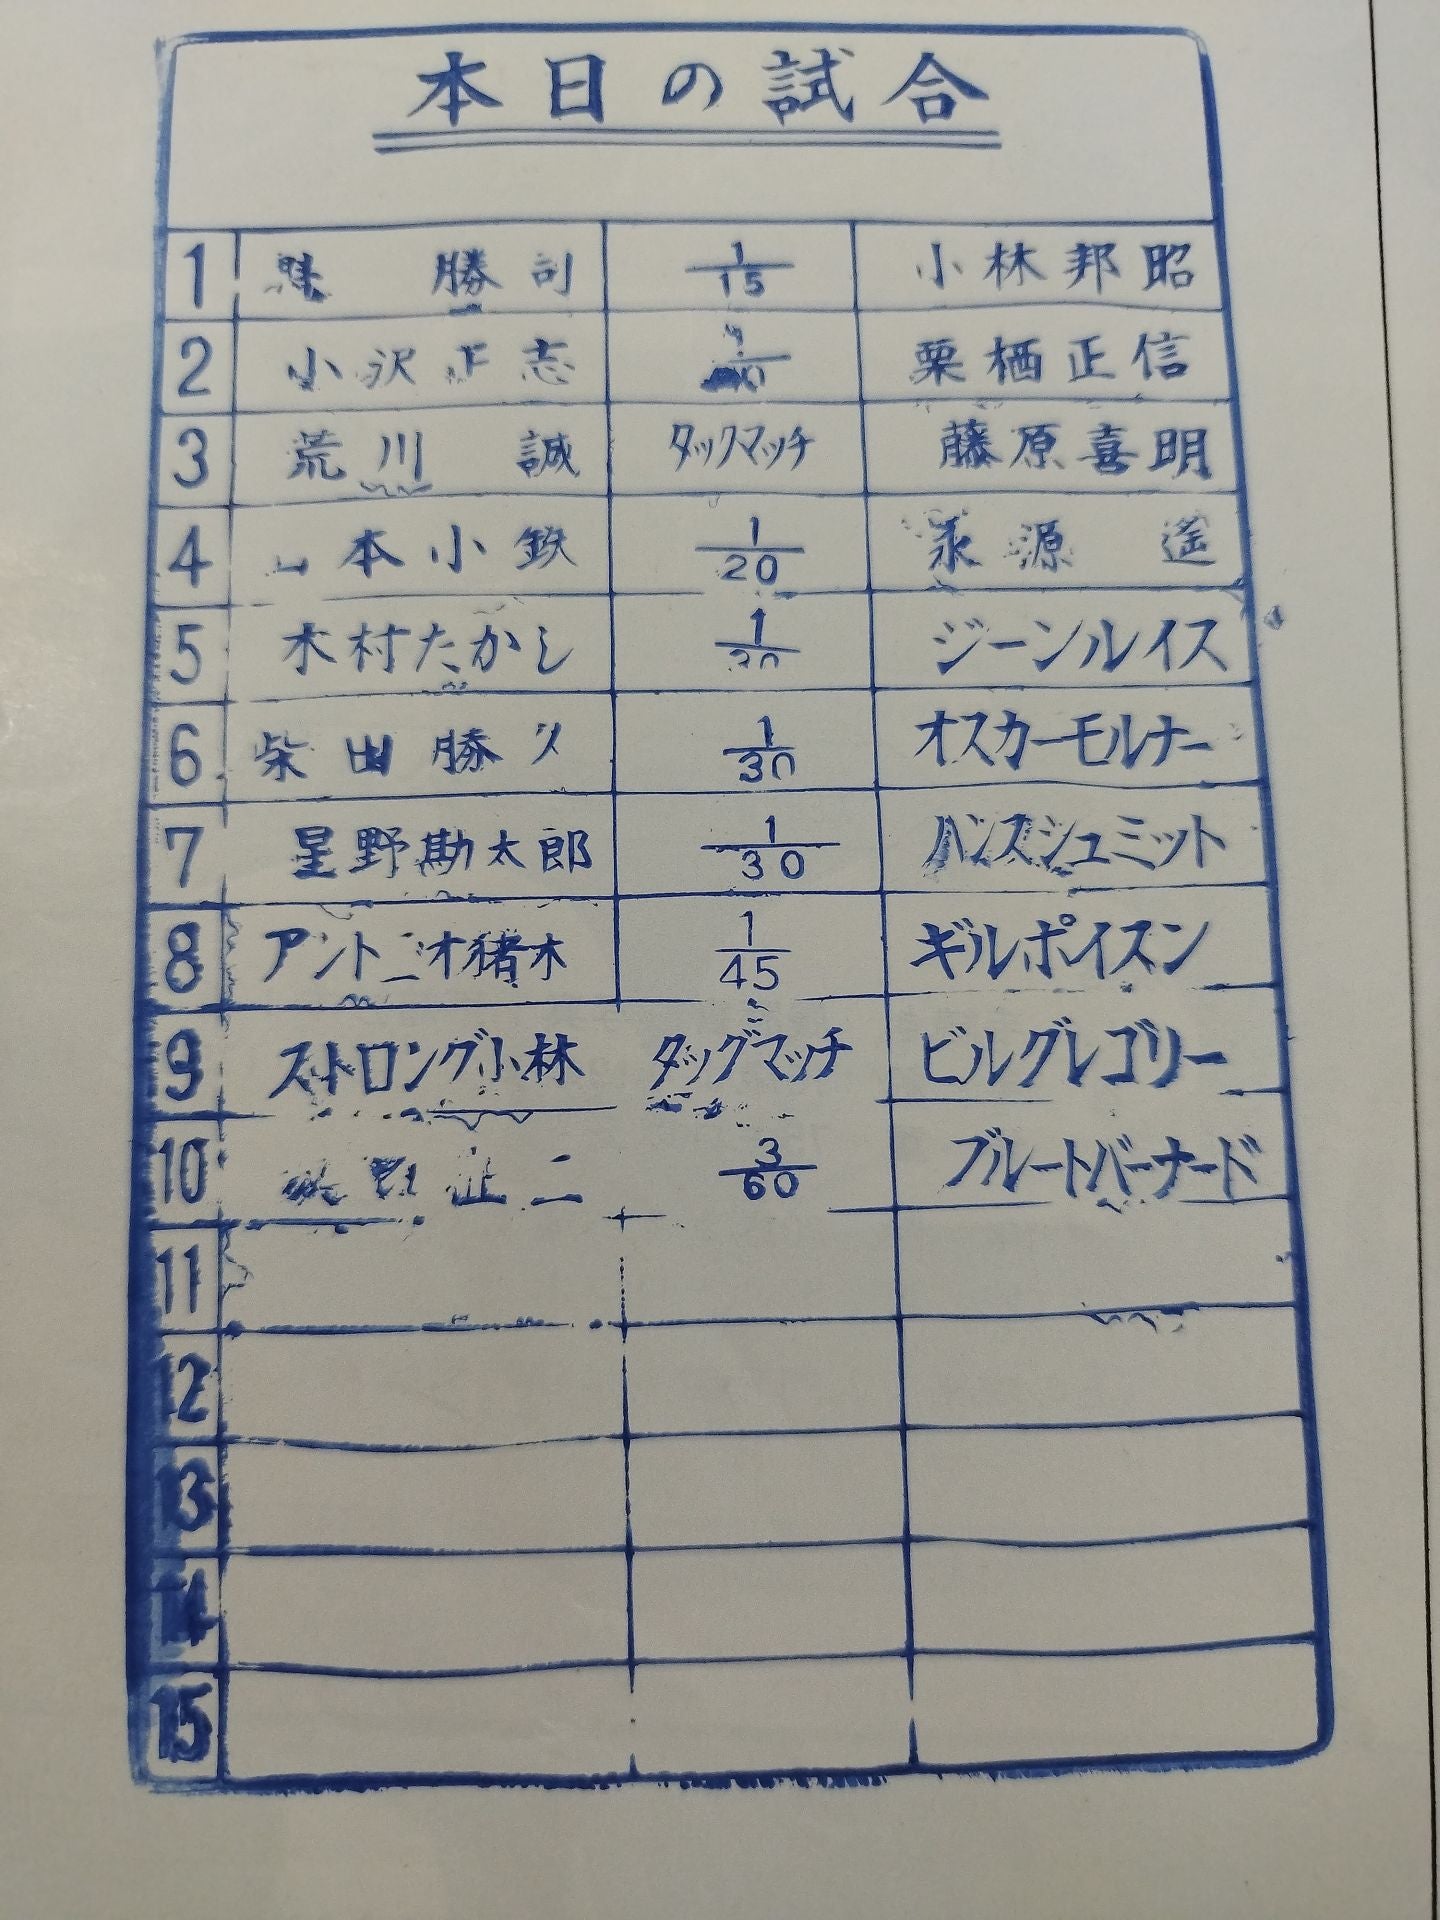 本日の試合
1 勝司 1/15 小林邦昭
2 小沢正志 栗栖正信
3 荒川 誠 タッグマッチ 藤原喜明
4 山本小鉄 1/20 永源 遙
5 木村たかし 1/30 ジーンルイス
6 柴田勝久 1/30 オスカーモルナー
7 星野勘太郎 1/30 ハンスシュミット
8 アントニオ猪木 1/45 ギルポイスン
9 ストロング小林 タッグマッチ ビルグレゴリー
10 3/60 ブルートバーナード
11
12
13
14
15